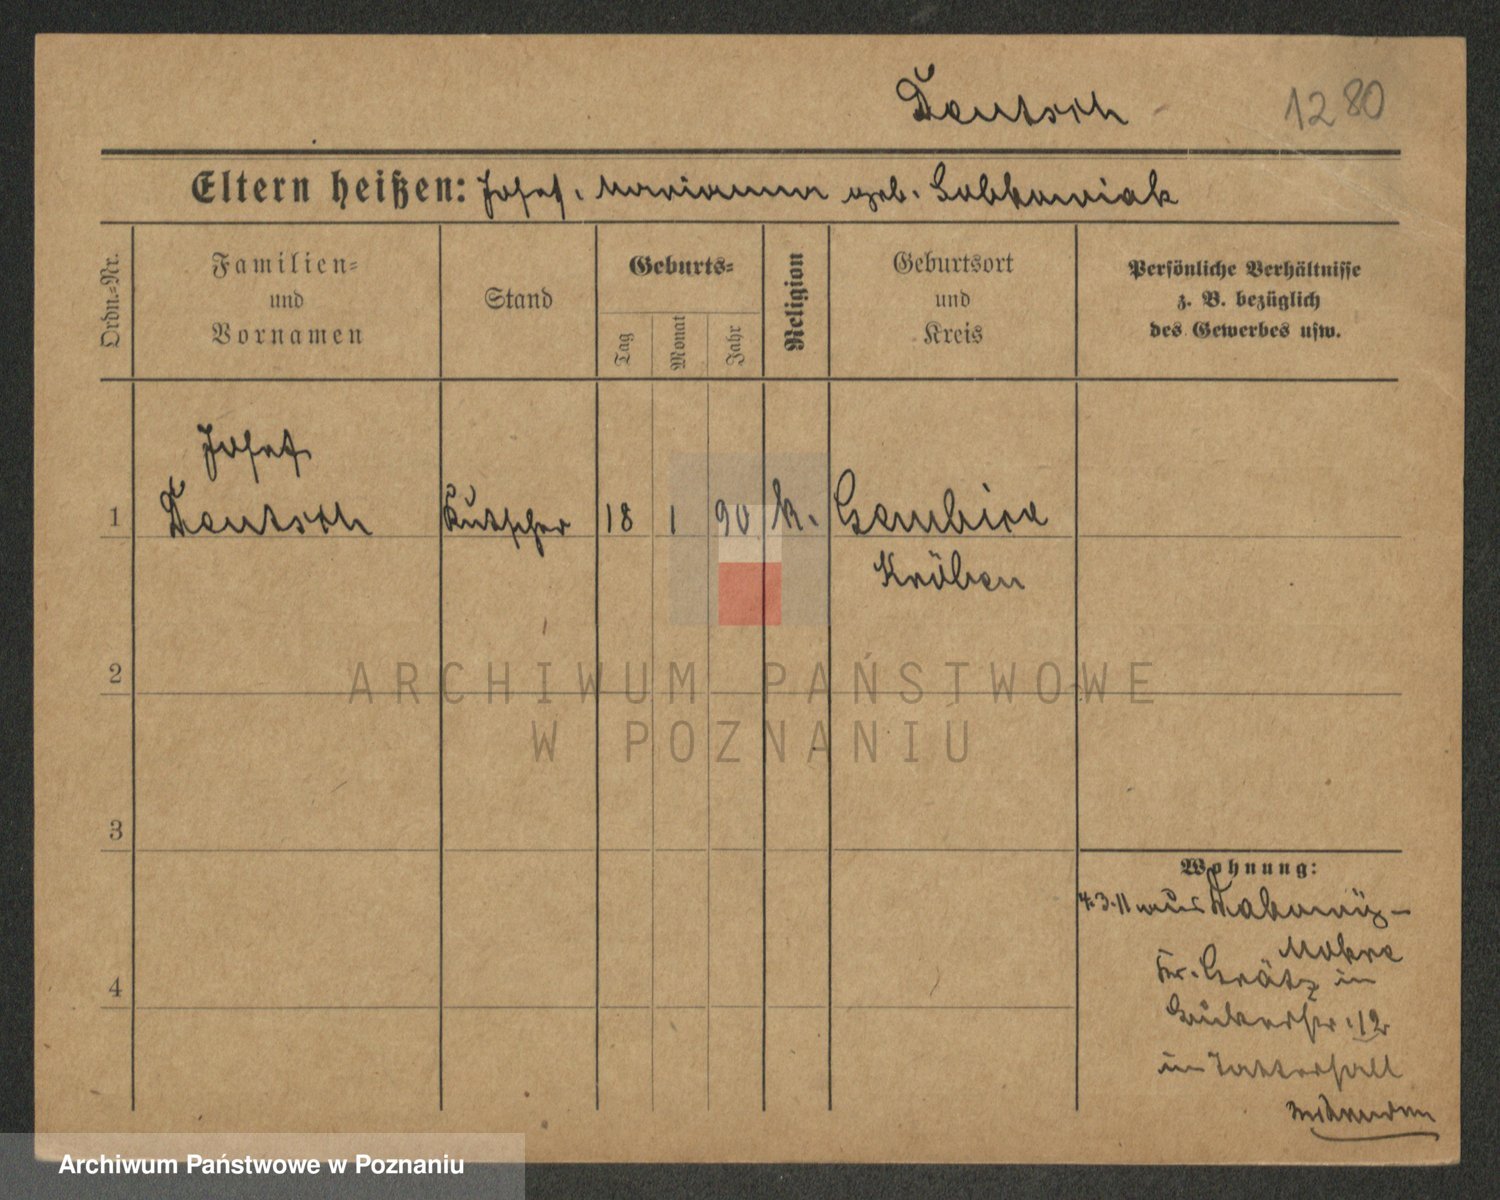 Deutsch
1280
Eltern heißen: Josef, Marianna geb. Sobkowiak
Ordn.-Nr.
Familien-
und
Vornamen
Stand
Geburts-
Tag
Monat
Jahr
Religion
Geburtsort
und
Kreis
Persönliche Verhältnisse
z. B. bezüglich
des Gewerbes usw.
Josef
1 Deutsch Kutscher 18 1 90 k. Gembice
Kröben
2
3
4
Wohnung:
4.3.11 aus
Mokre
Kr. Grätz in
12
in Tattersall
ARCHIWUM PAŃSTWOWE
W POZNANIU
Archiwum Państwowe w Poznaniu